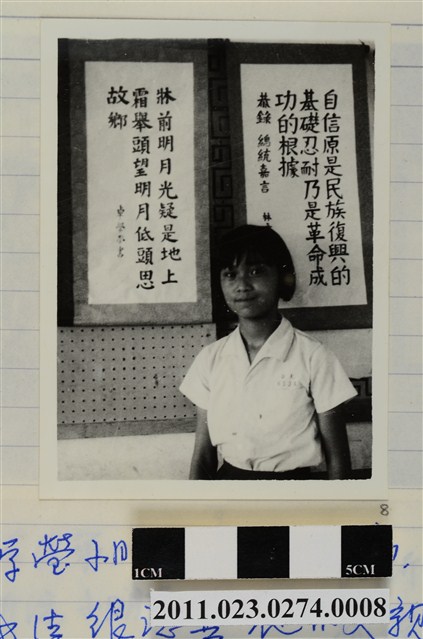 自信原是民族復興的
基礎忍耐乃是革命成
功的根據
恭錄 總統嘉言
林
牀前明月光疑是地上
霜舉頭望明月低頭思
故鄉
8
1CM 5CM
2011.023.0274.0008